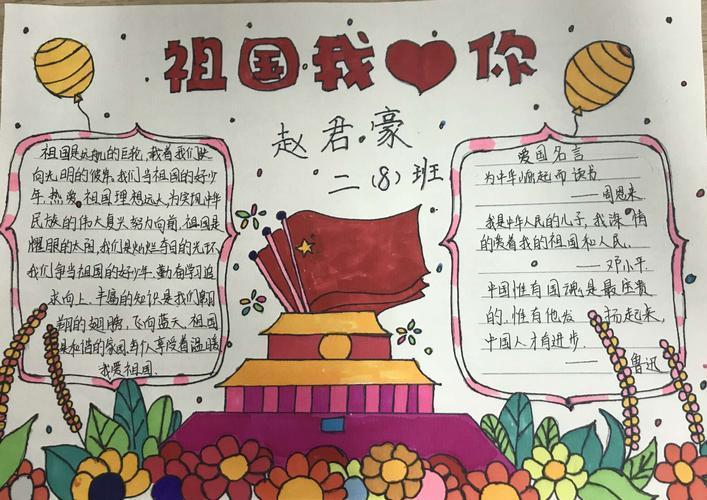 祖国我你
赵君豪
二(8)班
祖国是远航的巨轮,载着我们驶
向光明的彼岸。我们当祖国的好少
年。热爱祖国理想远大,为实现中华
民族的伟大复兴努力向前。祖国是
耀眼的太阳,我们是灿烂夺目的光环
我们争当祖国的好少年。勤奋学习追
求向上。丰富的知识是我们翱
翔的翅膀,飞向蓝天。祖国
是和谐的家园,每个人享受着温暖
我爱祖国。
爱国名言
为中华崛起而读书
——周恩来
我是中华人民的儿子,我深情
的爱着我的祖国和人民。
——邓小平
中国惟有国魂是最宝贵
的,惟有他发扬起来,
中国人才有进步。
——鲁迅